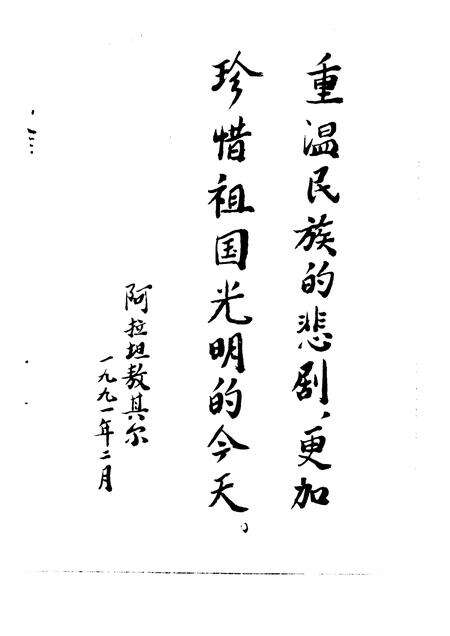 重温民族的悲剧，更加
珍惜祖国光明的今天。
阿拉坦敖其尔
一九九一年二月